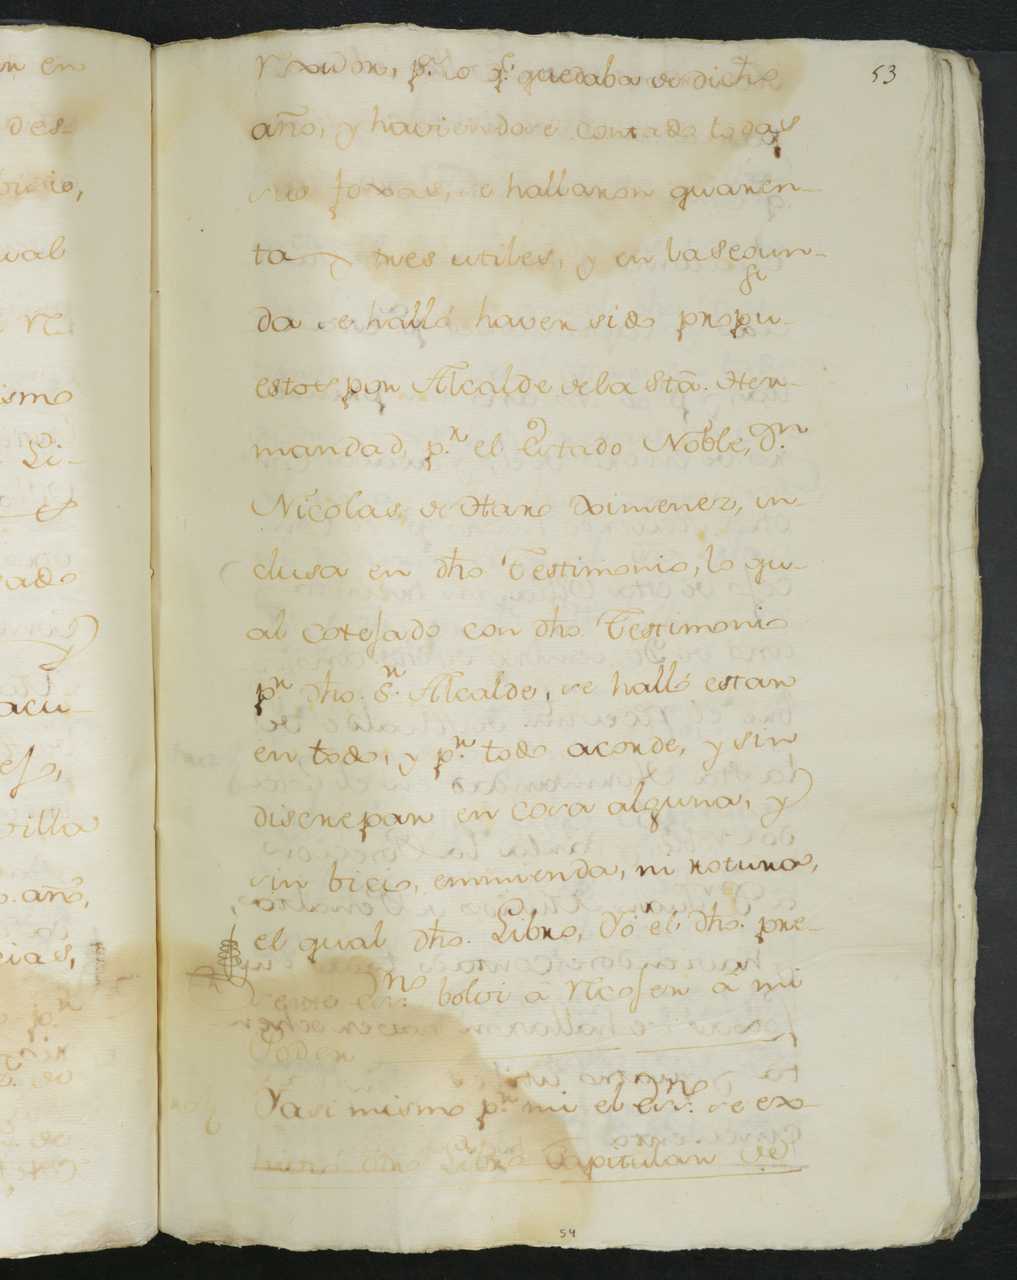 53
quedaba de dicho
año, y haviendose contado todas
sus foxas, se hallaron quaren-
ta y tres utiles, y en la segun-
da se halló haver sido propu-
estos por Alcalde de la Sta. Her-
mandad, p.r el Estado Noble, Dn.
Nicolas de Haro Ximenez, in-
clusa en dho Testimonio, lo qu-
al cotejado con dho. Testimonio
pr dho. Sr. Alcalde, se halló estar
en todo, y pr. todo acorde, y sin
discrepar en cosa alguna, y
sin bicio, enmienda, ni rotura,
el qual dho. Libro, Yo el dho. pre-
sente esno. bolví á recojer á mi
Poder
Y asi mismo pr. mi el esno. se ex-
hivió otro Libro Capitular de
54